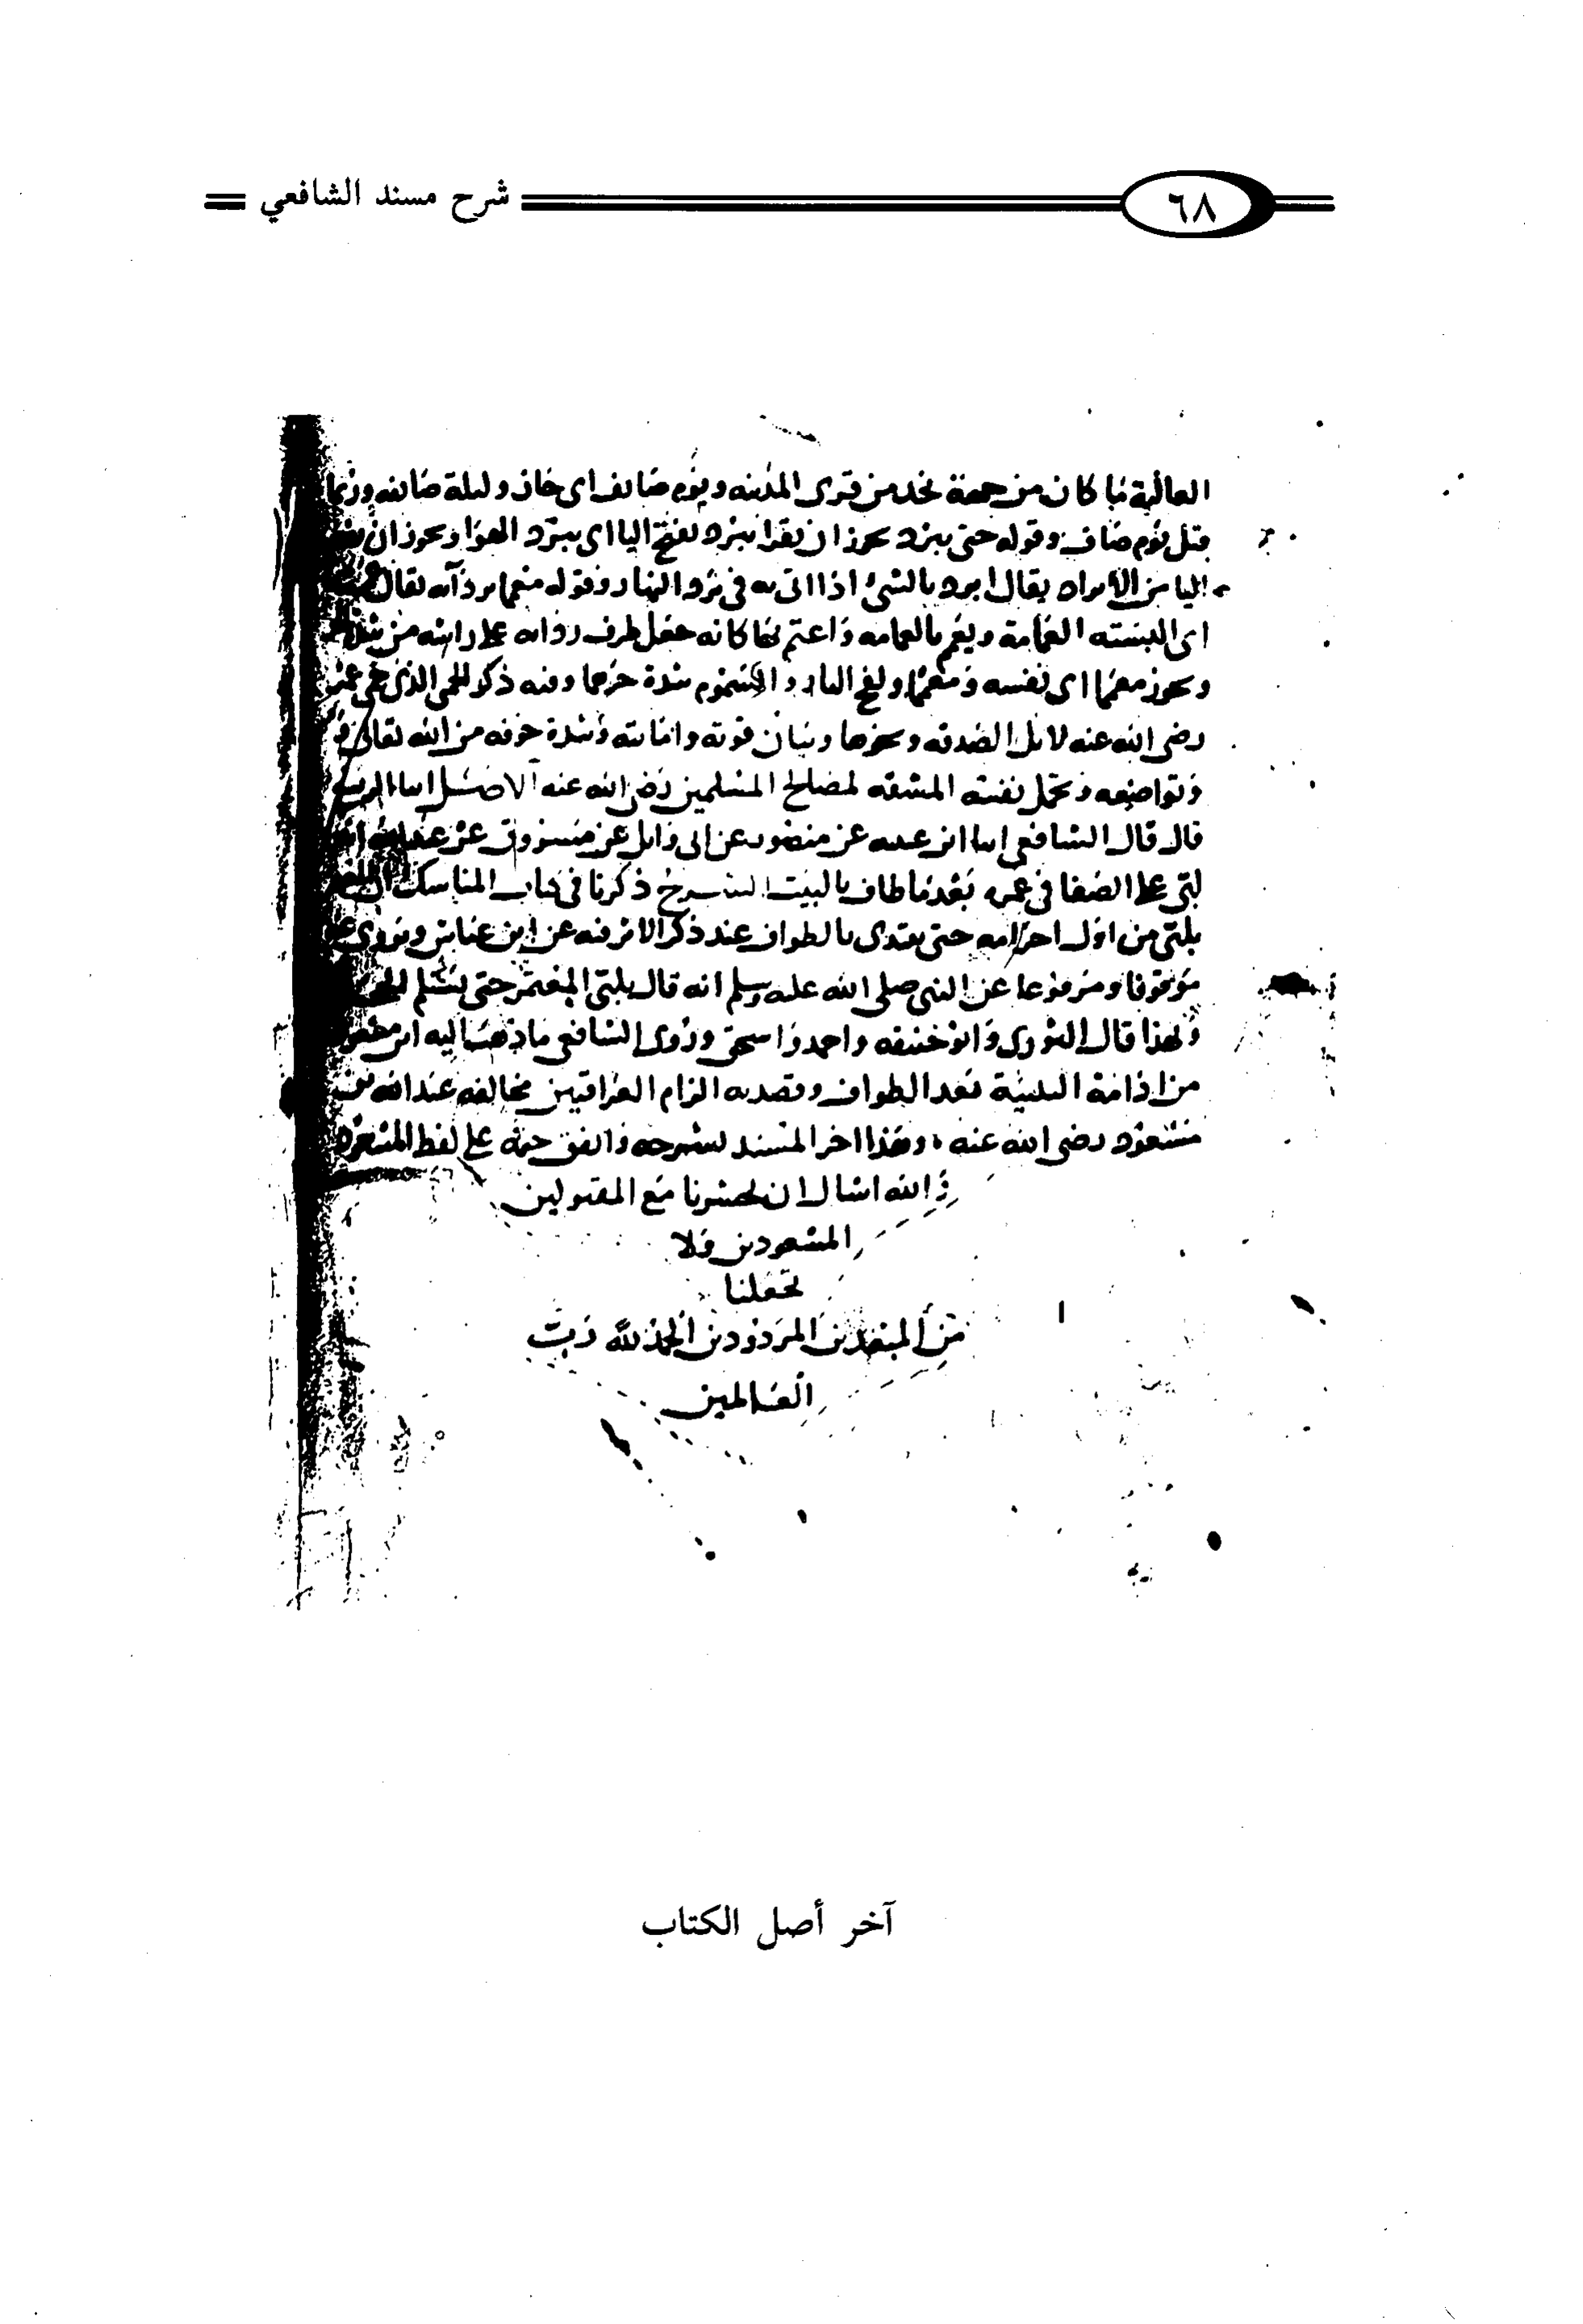 شرح مسند الشافعي
٦٨
العالية ما كان من جهة نجد من قرى المدينه ويوم صايف اى حار وليلة صايفه وربما
قيل يوم صاف وقوله حتى يبرد يجوز ان يقرا يبرد بفتح اليا اى يبرد الهوا ويجوز ان
اليا من الابراد يقال ابرد بالشئ اذا اتى به فى برد النهار وقوله معمما بردآيه يقال
اى البسته العمامة ويعم بالعمامه واعتم بها كانه جعل طرف ردايه على راسه من
ويجوز معمما اى نفسه ومعمما ولفح النار والسموم شدة حرها وفيه ذكر للحمى الذى حمى عمر
رضى الله عنه لابل الصدقه ونحوها وبيان قوته وامانته وشدة خوفه من الله تعالى
وتواضعه وتحمل نفسه المشقه لمصالح المسلمين رضى الله عنه الاصل ابنا الربيع
قال قال الشافعى ابنا ابن عيينه عن منصور عن ابى وايل عن مسروق عن عبد الله انه
لبى على الصفا فى عمره بعد ما طاف بالبيت الشرح ذكرنا فى كتاب المناسك ان
يلبى من اول احرامه حتى يبتدى بالطواف عند ذكر الاثر فيه عن ابن عباس ويروى
موقوفا ومرفوعا عن النبى صلى الله عليه وسلم انه قال يلبى المعتمر حتى يستلم الحجر
وبهذا قال الثورى وابو حنيفه واحمد واسحق وروى الشافعى ما ذهب اليه ابن مسعود
من اذامة التلبية بعد الطواف وقصد به الزام العراقيين مخالفه عبد الله بن
مسعود رضى الله عنه وهذا اخر المسند بشرحه واتفق ختمه على لفظ المسعود
والله اسال ان يحشرنا مع المقبولين
المسعودين ولا
تجعلنا
من المبعدين المردودين الحمد لله رب
العالمين
آخر أصل الكتاب